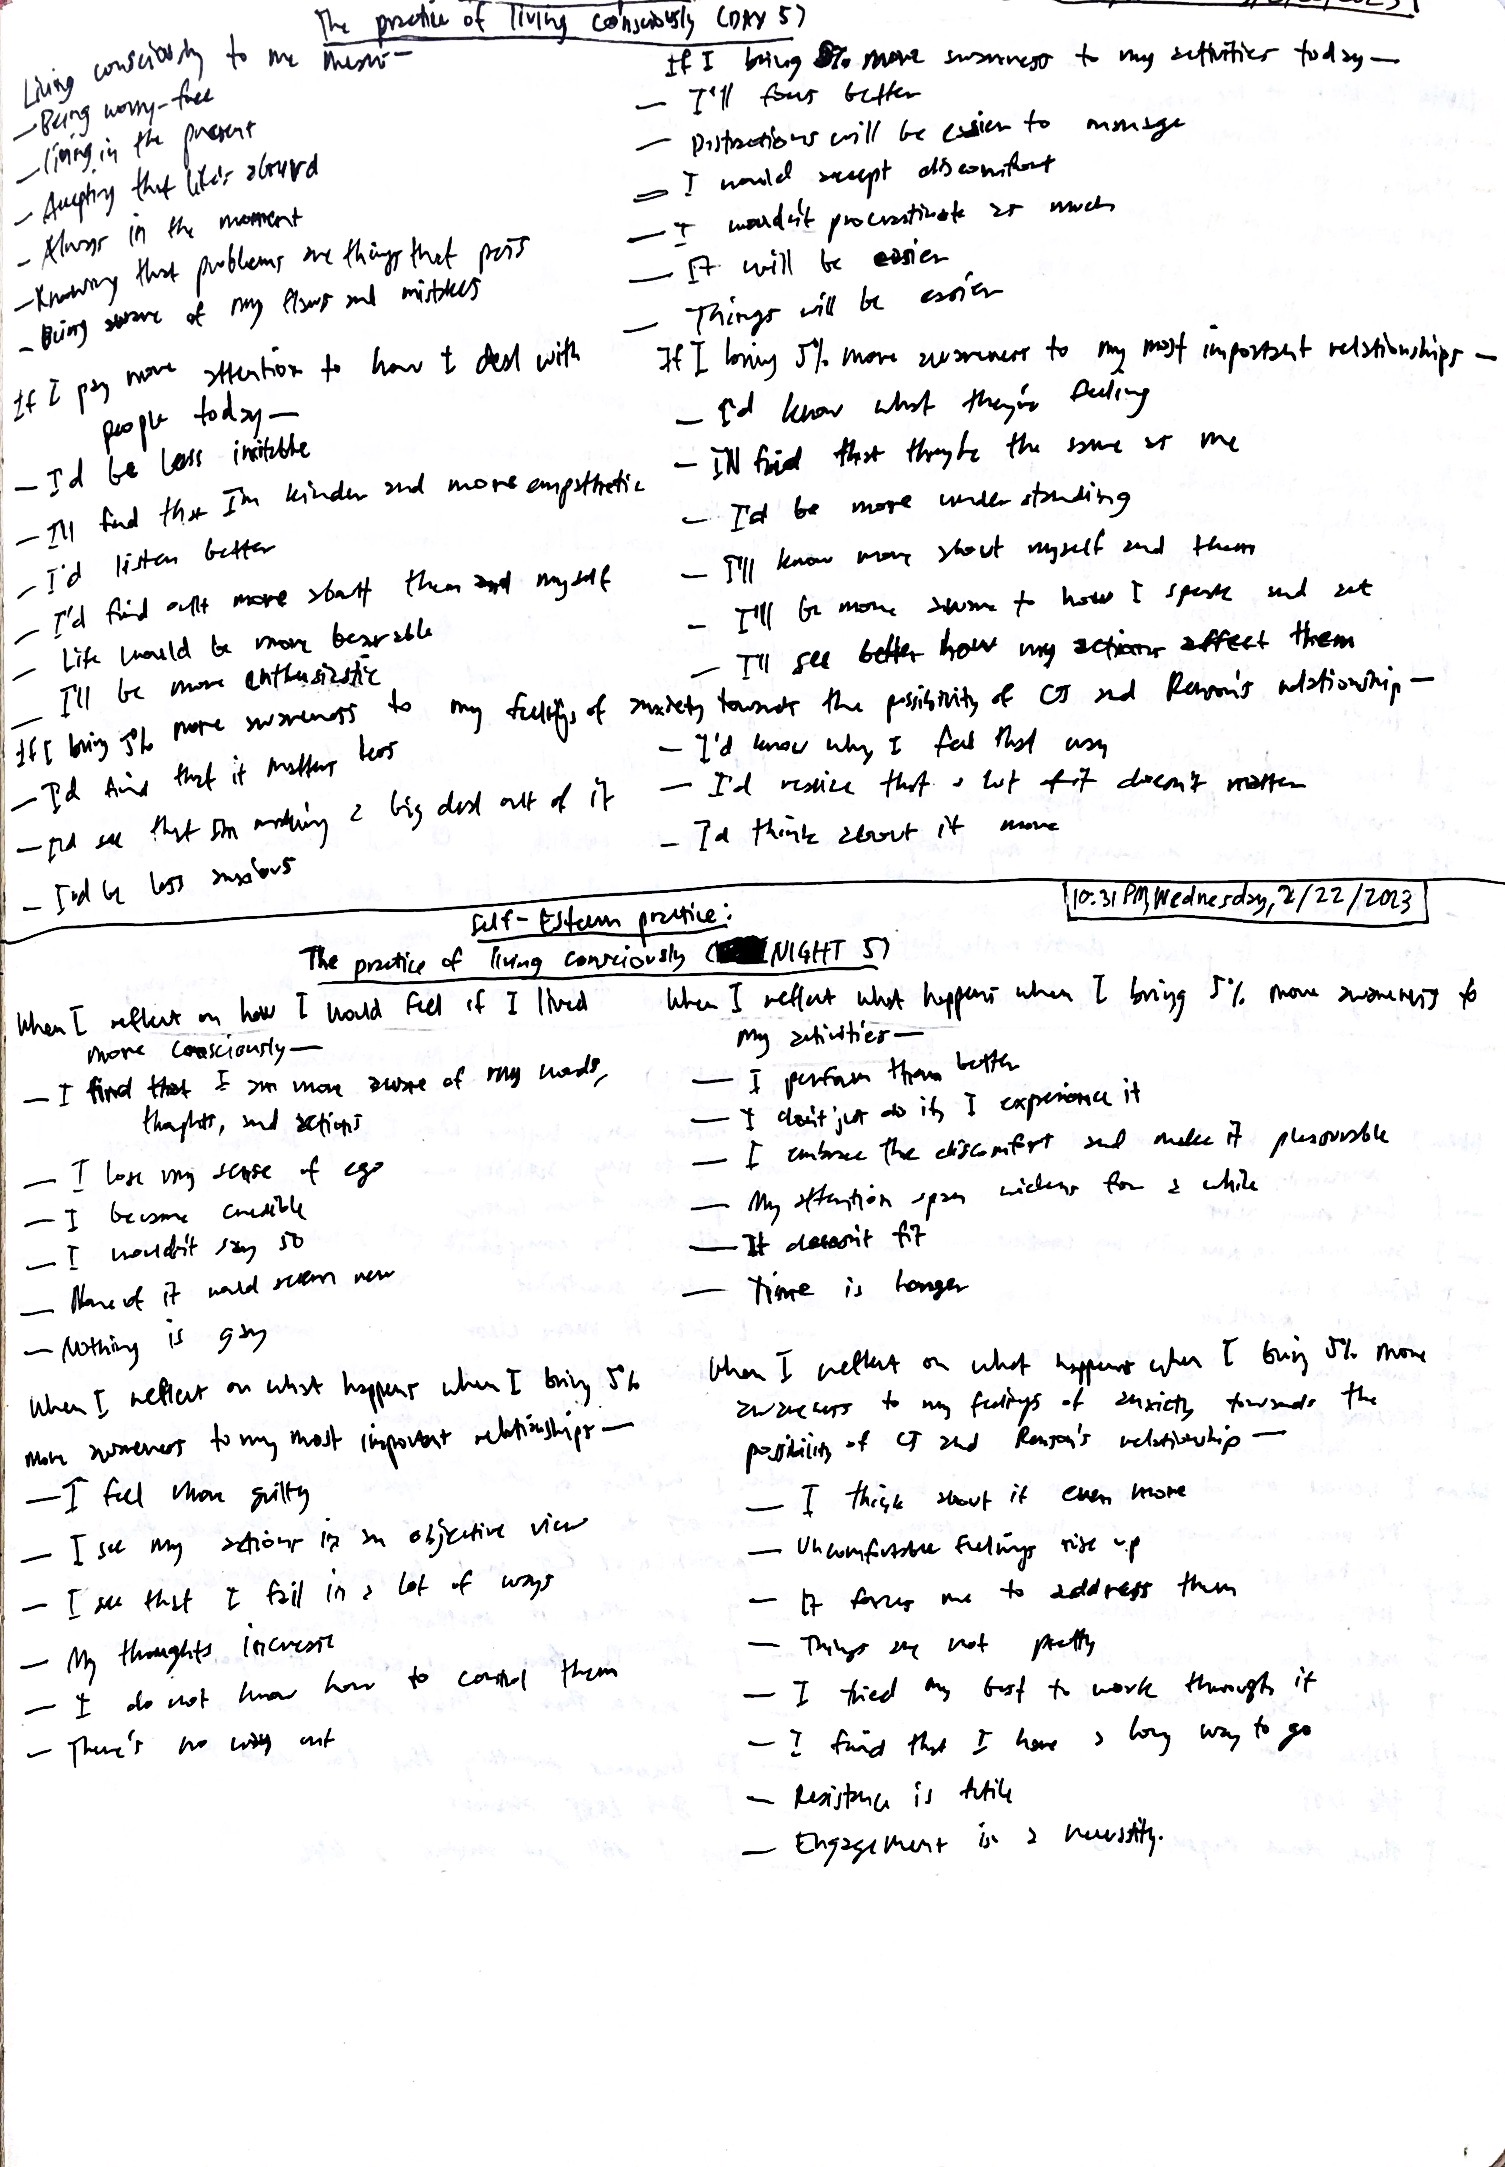 The practice of living consciously (DAY 5)
Living consciously to me means—
— Being worry-free
— living in the present
— Accepting that life's absurd
— Always in the moment
— Knowing that problems are things that pass
— Being aware of my flaws and mistakes
If I pay more attention to how I deal with
people today—
— I'd be less irritable
— I'll find that I'm kinder and more empathetic
— I'd listen better
— I'd find out more about them and myself
— Life would be more bearable
— I'll be more enthusiastic
If I bring 5% more awareness to my activities today—
— I'll focus better
— Distractions will be easier to manage
— I would accept discomfort
— I wouldn't procrastinate as much
— It will be easier
— Things will be easier
If I bring 5% more awareness to my most important relationships —
— I'd know what they're feeling
— I'll find that they're the same as me
— I'd be more understanding
— I'll know more about myself and them
— I'll be more aware to how I speak and act
— I'll see better how my actions affect them
If I bring 5% more awareness to my feelings of anxiety towards the possibility of CJ and Renson's relationship—
— I'd find that it matters less
— I'd see that I'm making a big deal out of it
— I'd be less anxious
— I'd know why I feel that way
— I'd realize that a lot of it doesn't matter
— I'd think about it more
10:31 PM, Wednesday, 2/22/2023
Self-Esteem practice:
The practice of living consciously (NIGHT 5)
When I reflect on how I would feel if I lived
more consciously—
— I find that I am more aware of my words,
thoughts, and actions
— I lose my sense of ego
— I become credible
— I wouldn't say so
— None of it would seem new
— Nothing is gay
When I reflect what happens when I bring 5% more awareness to
my activities—
— I perform them better
— I don't just do it, I experience it
— I embrace the discomfort and make it pleasurable
— My attention span widens for a while
— It doesn't fit
— Time is longer
When I reflect on what happens when I bring 5%
more awareness to my most important relationships—
— I feel more guilty
— I see my actions in an objective view
— I see that I fail in a lot of ways
— My thoughts increase
— I do not know how to control them
— There's no way out
When I reflect on what happens when I bring 5% more
awareness to my feelings of anxiety towards the
possibility of CJ and Renson's relationship—
— I think about it even more
— Uncomfortable feelings rise up
— It forces me to address them
— Things are not pretty
— I tried my best to work through it
— I find that I have a long way to go
— Resistance is futile
— Engagement is a necessity.